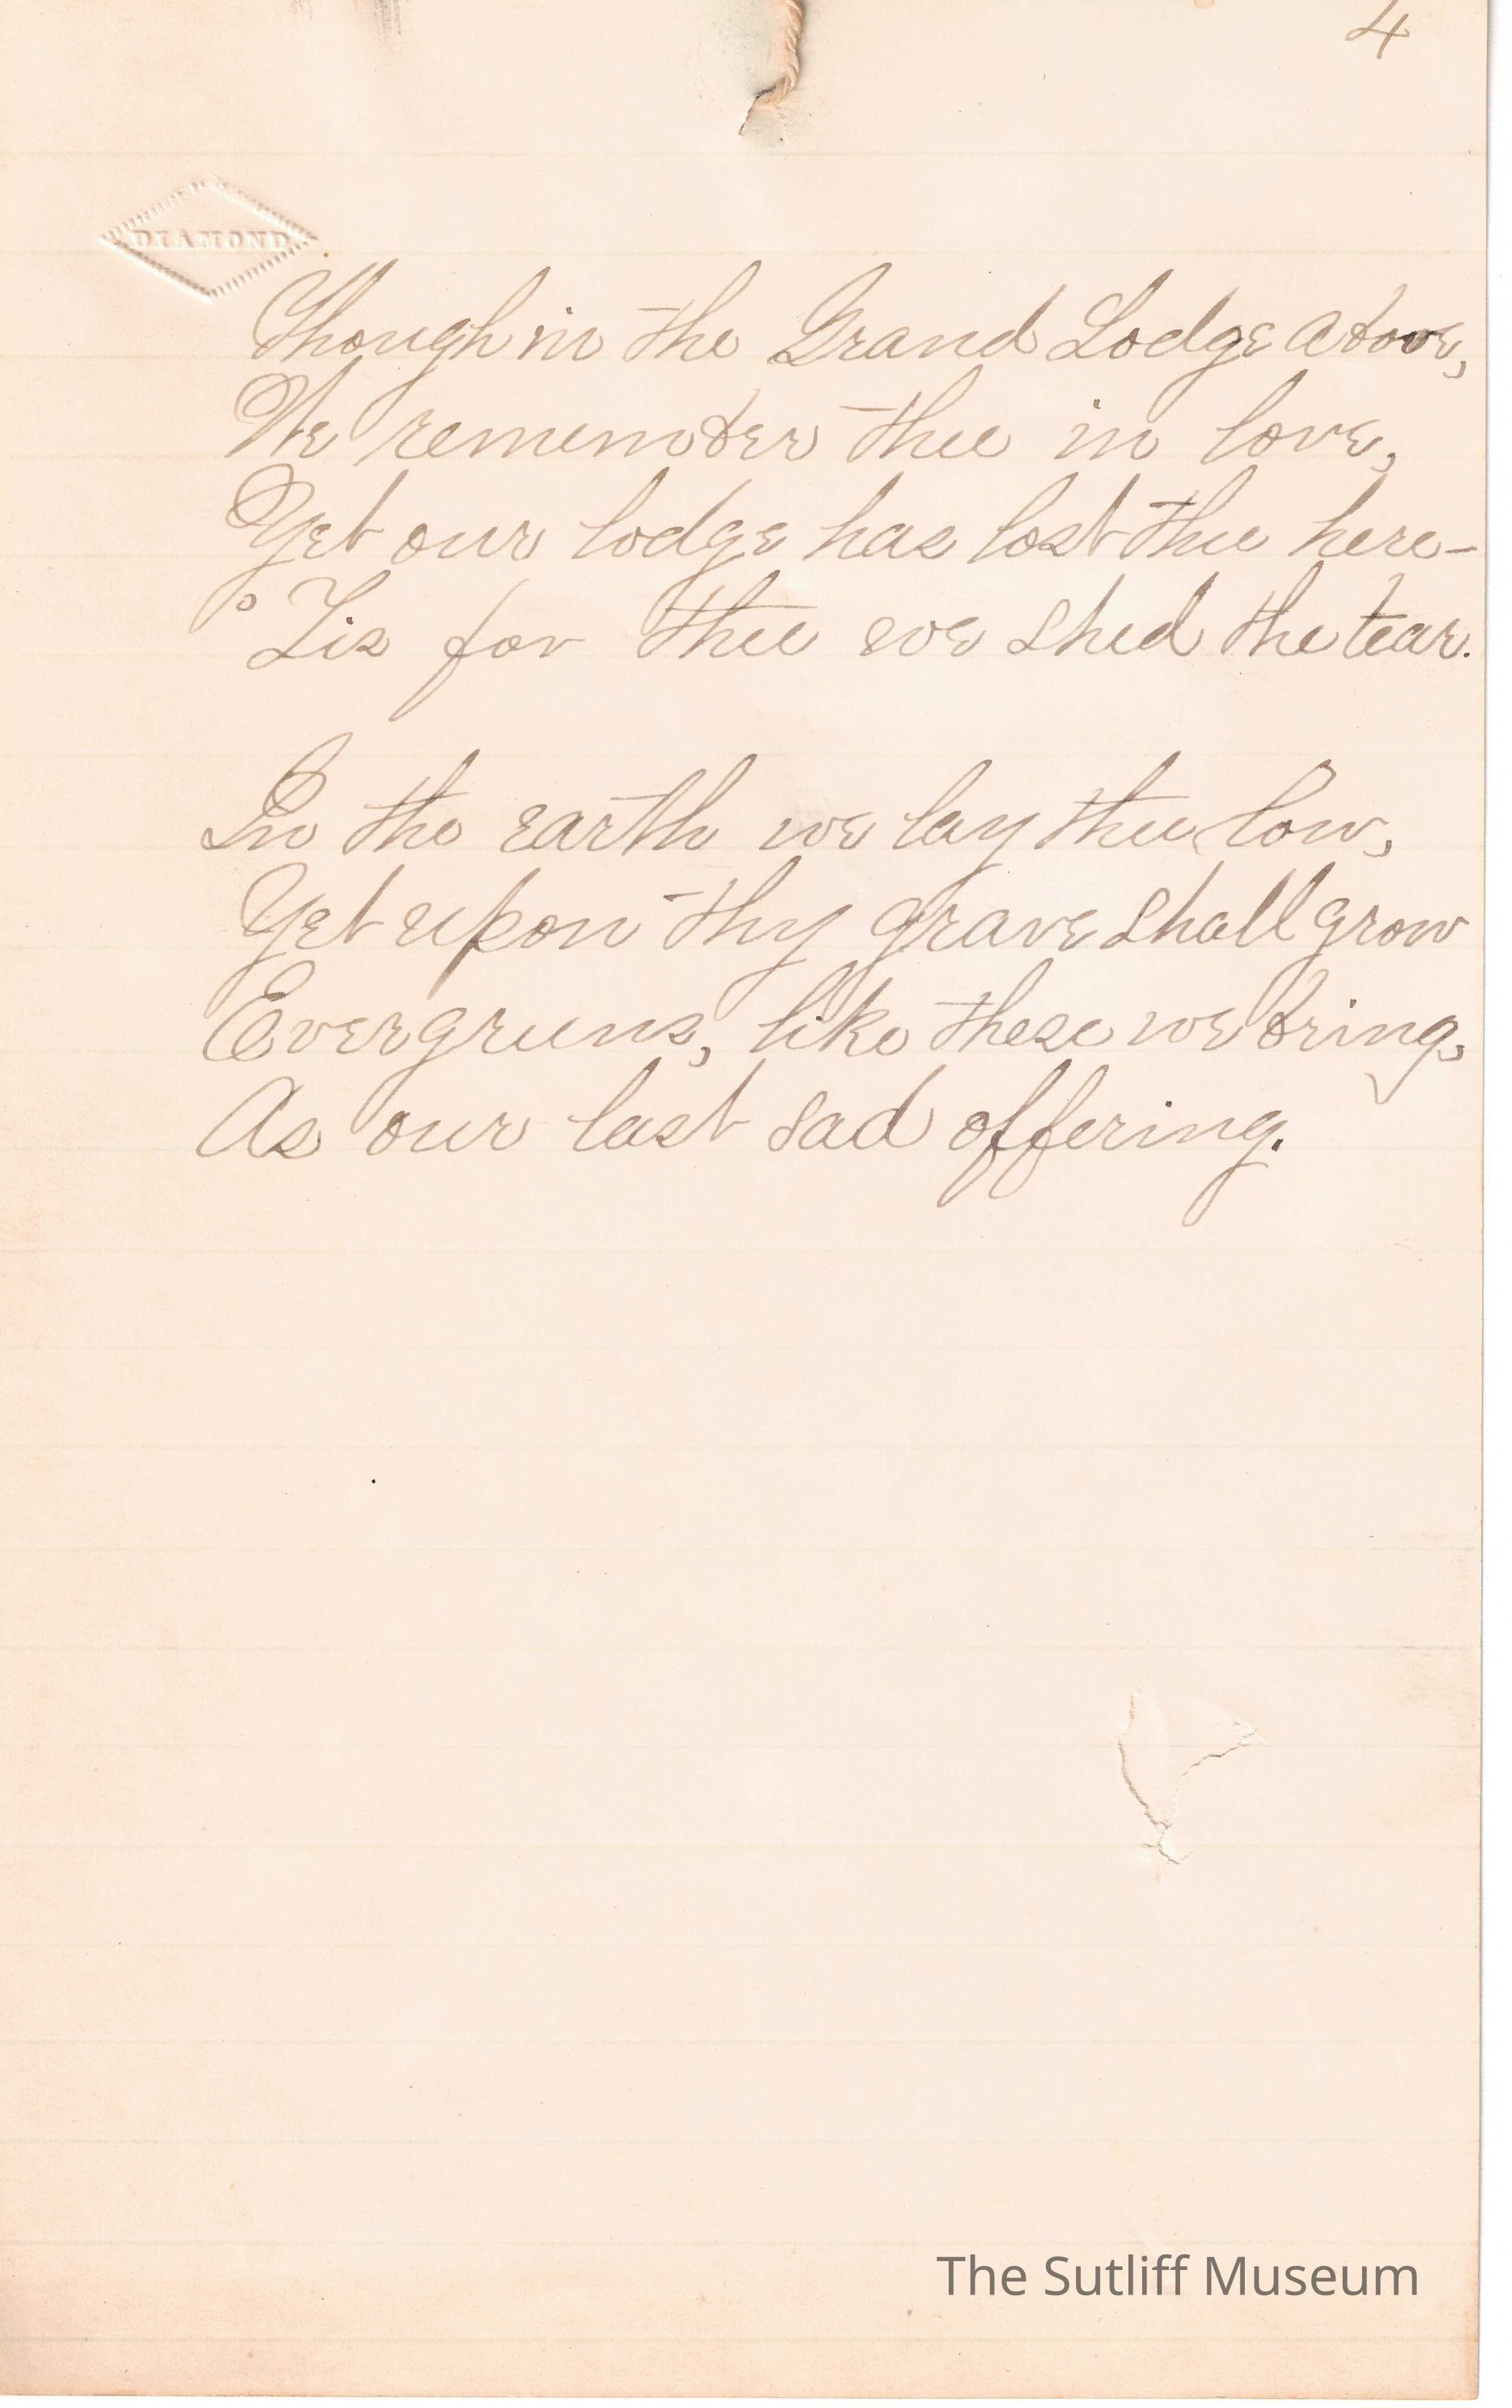 4
DIAMOND
Though in the Grand Lodge above,
We remember thee in love,
Yet our lodge has lost thee here–
'Tis for thee we shed the tear.
In the earth we lay thee low,
Yet upon thy grave shall grow
Evergreens, like these we bring,
As our last sad offering.
The Sutliff Museum